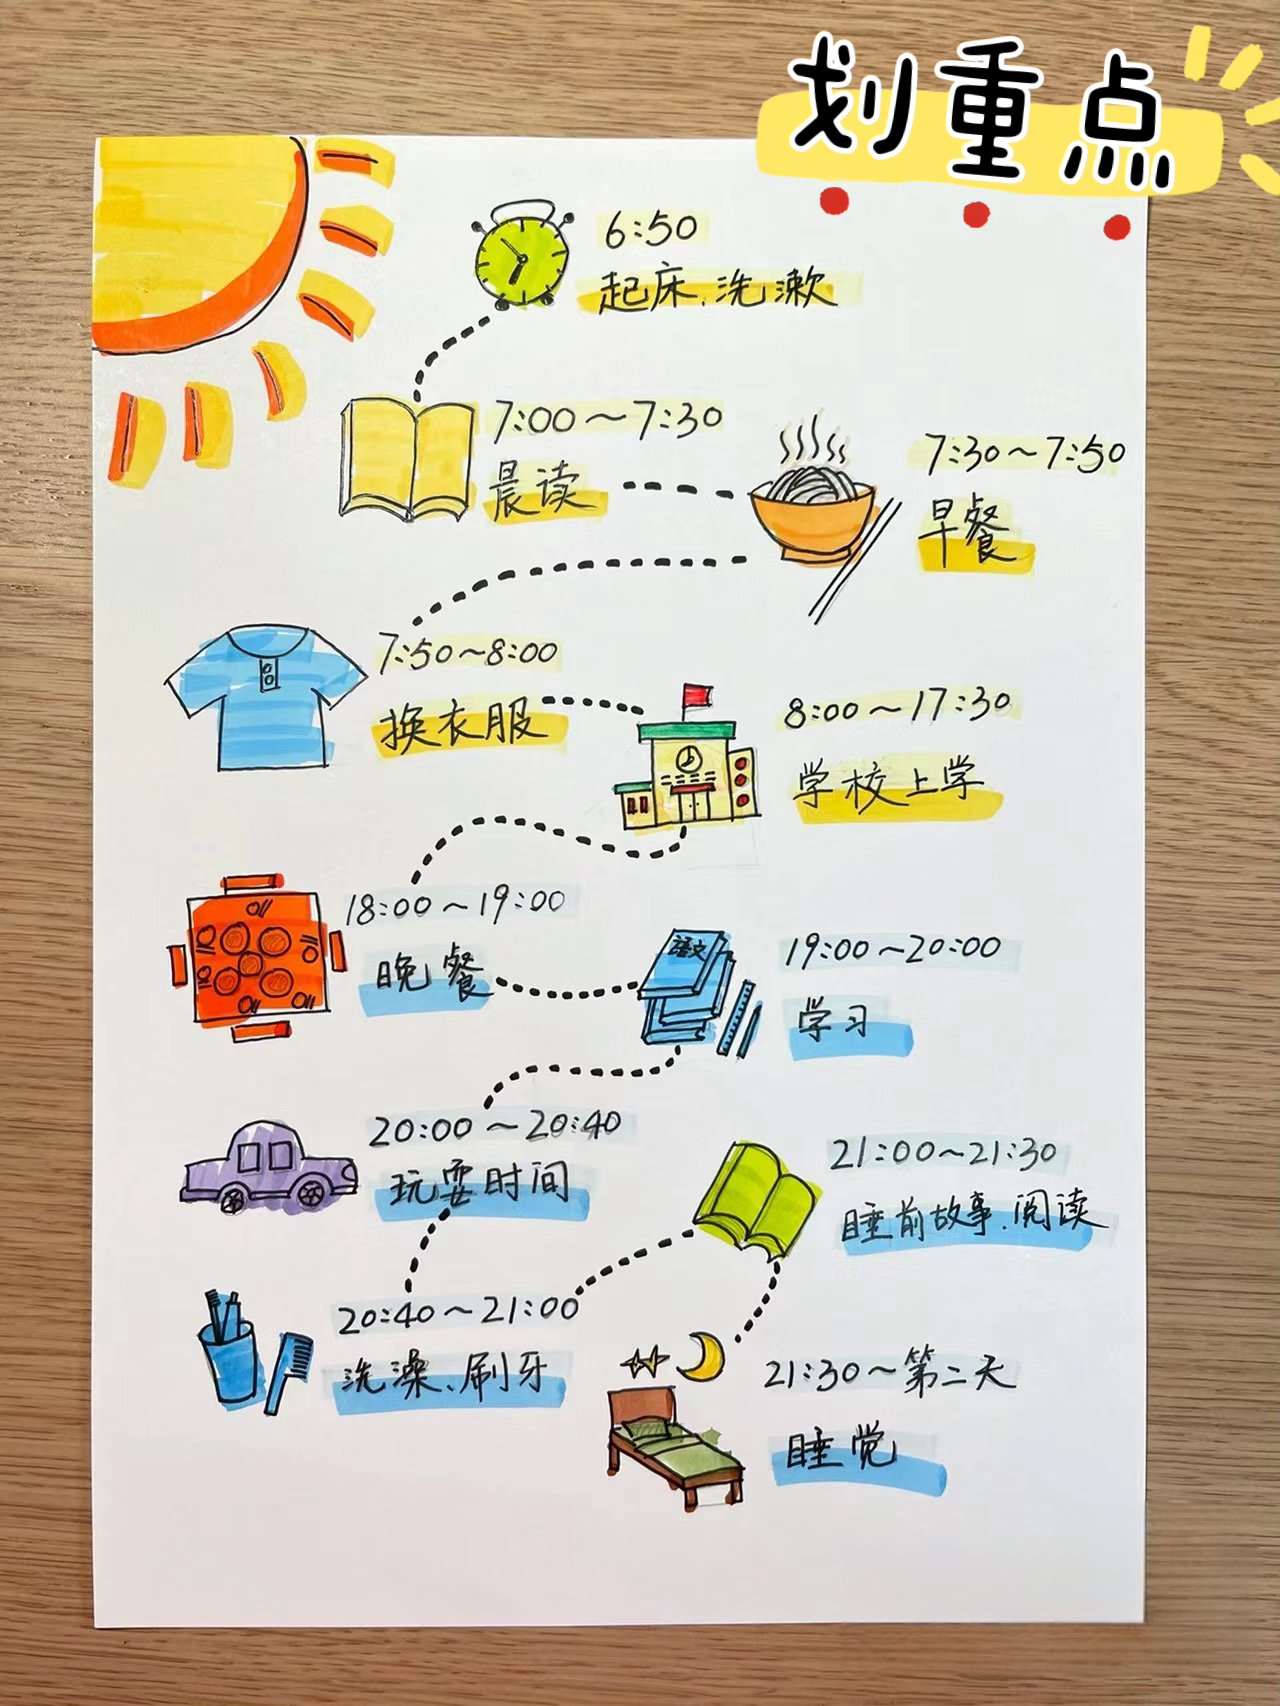 划重点
6:50
起床、洗漱
7:00~7:30
晨读
7:30~7:50
早餐
7:50~8:00
换衣服
8:00~17:30
学校上学
18:00~19:00
晚餐
语文
19:00~20:00
学习
20:00~20:40
玩耍时间
20:40~21:00
洗澡、刷牙
21:00~21:30
睡前故事、阅读
21:30~第二天
睡觉